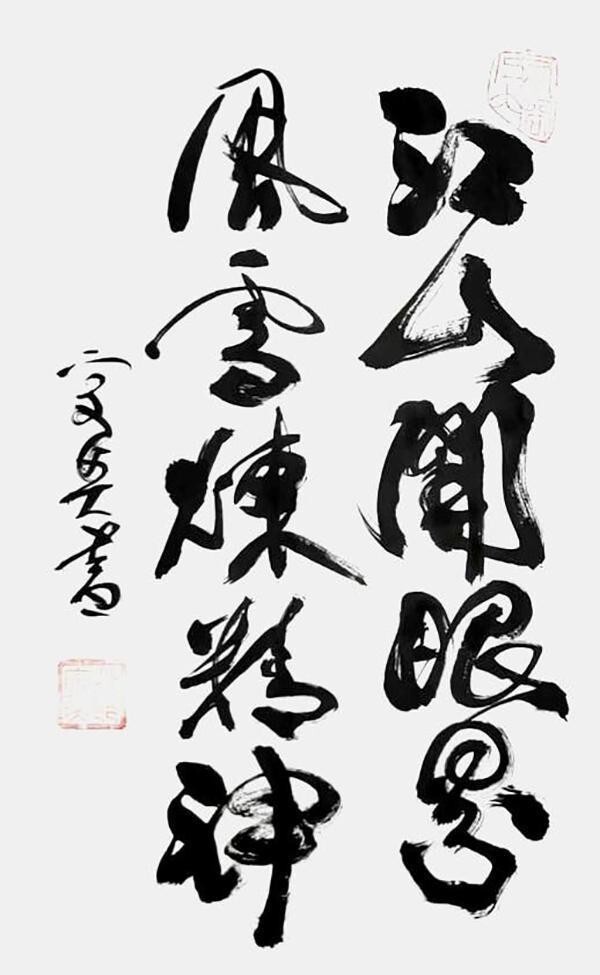 江山開眼界
風雪煉精神
書